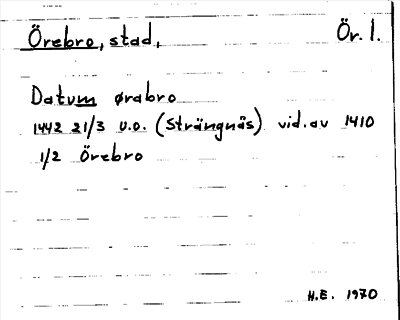 Örebro, stad, Ör. l.
Datum ørabro
1442 21/3 u.o. (Strängnäs) vid. av 1410
1/2 Örebro
H.E. 1970